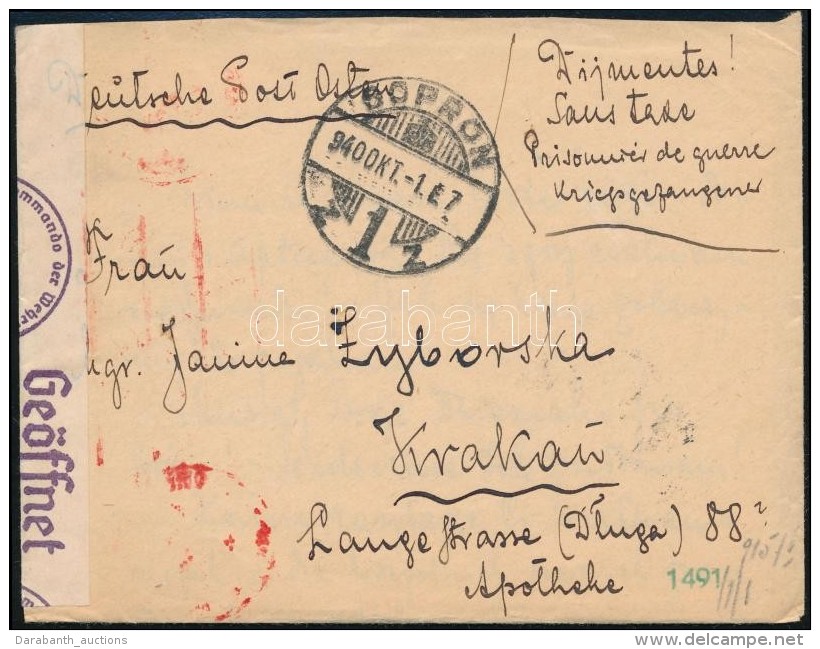 Deutsche Post Osten
SOPRON
940 OKT. -1. E 7
z 1 z
Díjmentes!
Sans taxe
Prisonnièr de guerre
Kriegsgefangener
Kommando der Wehr
Geöffnet
Frau
mgr. Janine Zyborska
Krakau
Lange strasse (Długa) 88
Apotheke
1491
915/
1/1
darabanth
Darabanth_auctions
delcampe.net